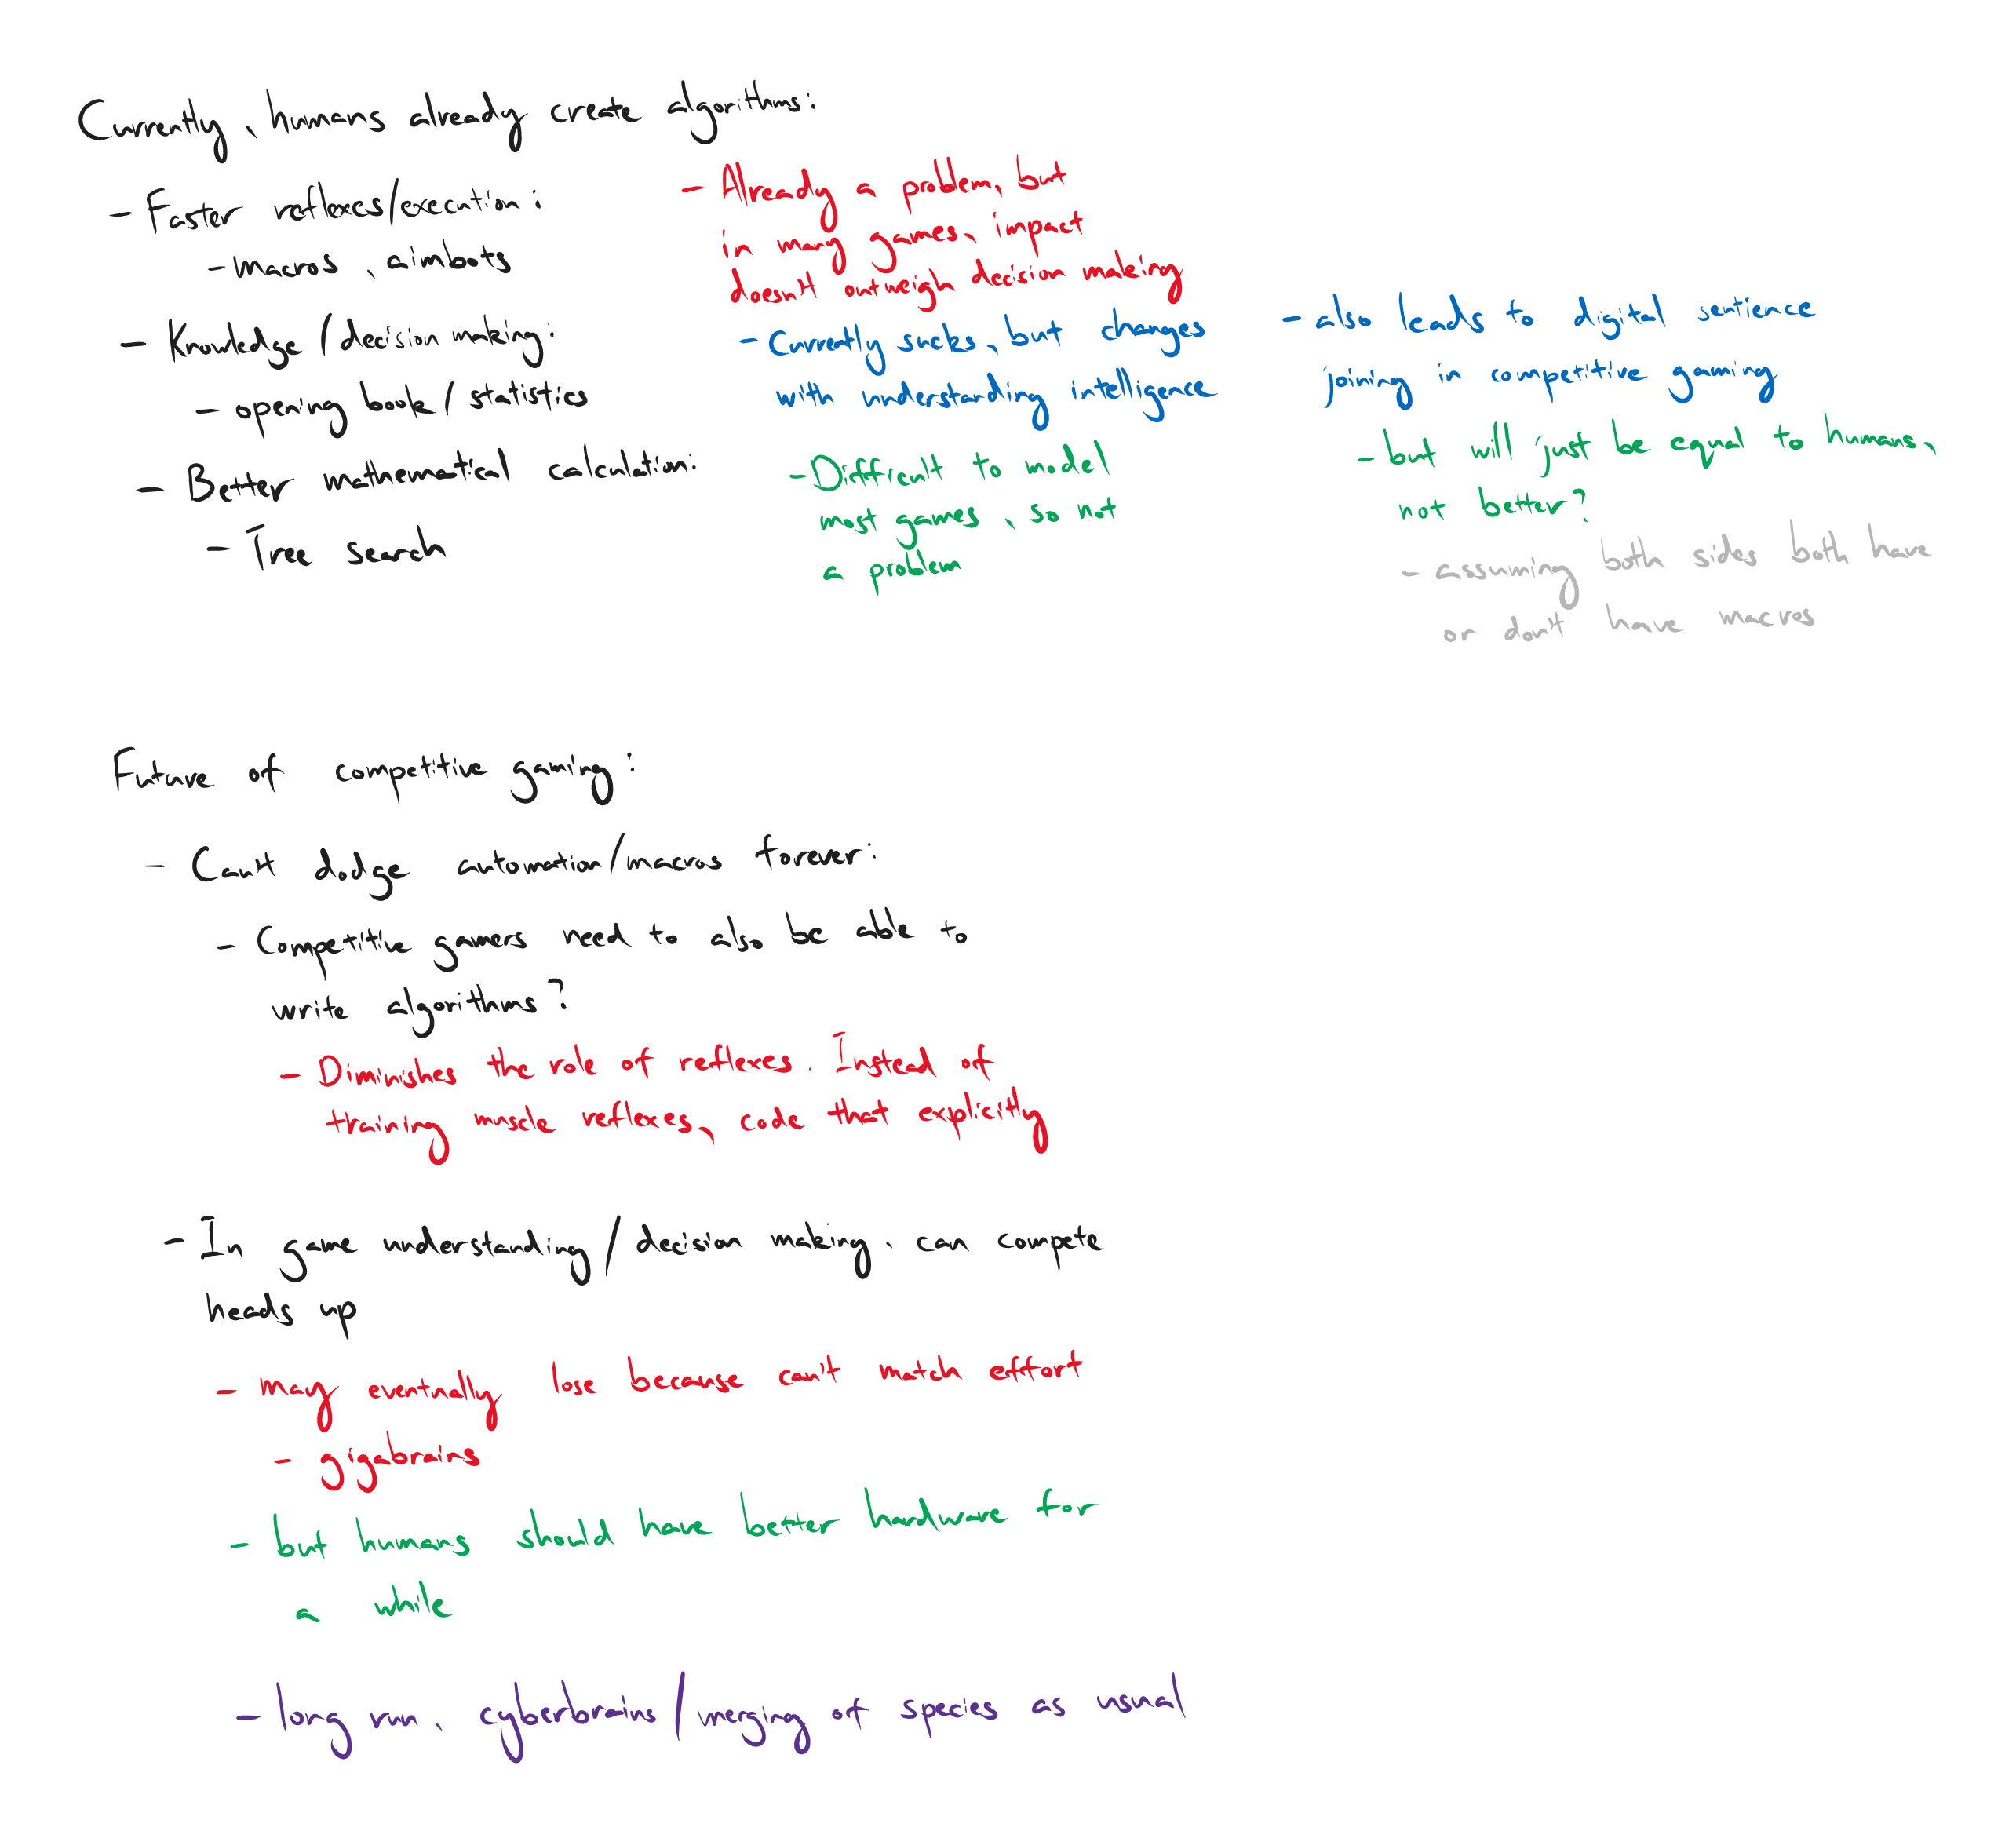 Currently, humans already create algorithms:
- Faster reflexes/execution:
- macros, aimbots
- Knowledge/decision making:
- opening book/statistics
- Better mathematical calculation:
- Tree search
- Already a problem, but
in many games, impact
doesn't outweigh decision making
- Currently sucks, but changes
with understanding intelligence
- Difficult to model
most games, so not
a problem
- also leads to digital sentience
joining in competitive gaming
- but will just be equal to humans,
not better?
- assuming both sides both have
or don't have macros
Future of competitive gaming:
- Can't dodge automation/macros forever:
- Competitive gamers need to also be able to
write algorithms?
- Diminishes the role of reflexes. Instead of
training muscle reflexes, code that explicitly
- In game understanding/decision making, can compete
heads up
- may eventually lose because can't match effort
- gigabrains
- but humans should have better hardware for
a while
- long run, cyberbrains/merging of species as usual